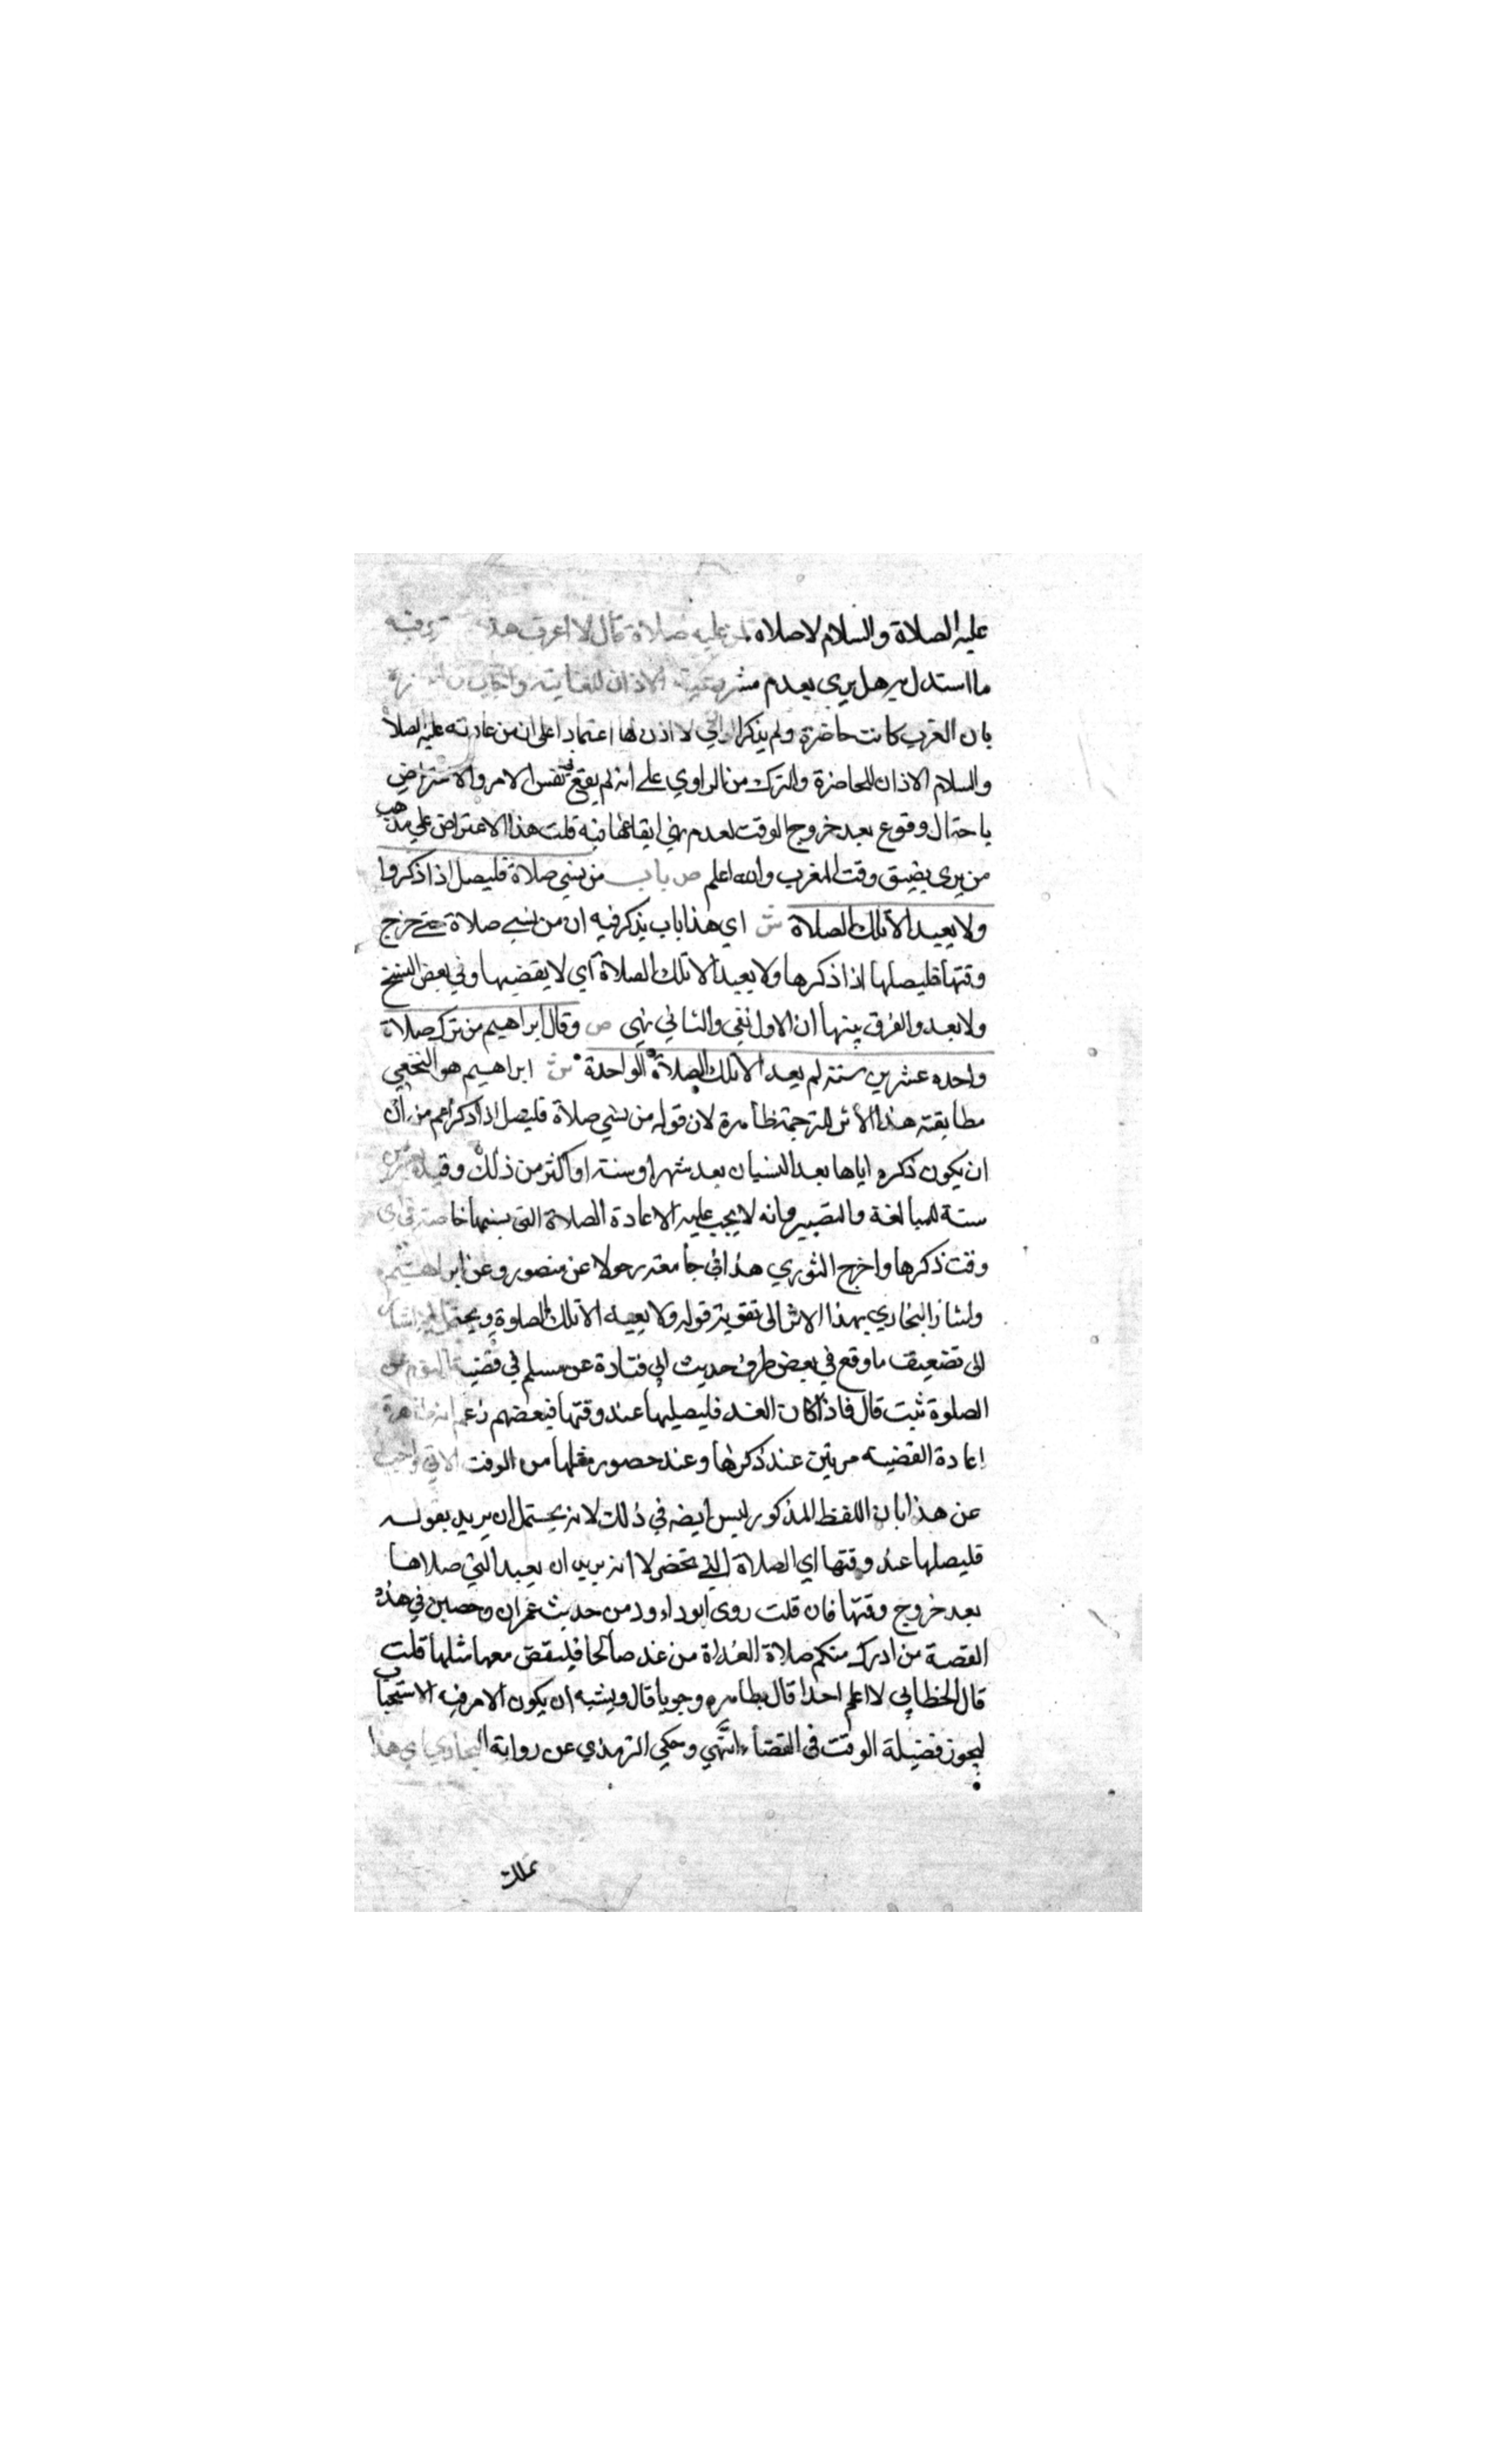 عليه الصلاة والسلام لا صلاة لمن عليه صلاة قال لا اعرف هذا وفيه
ما استدل به هل يري بعدم مشروعية الاذان للفايتة واجاب
بان المغرب كانت حاضرة ولم يذكر الراوي لا اذن لها اعتمادا على ان من عادته عليه الصلاة
والسلام الاذان للحاضرة والترك من الراوي على انه لم يقع في نفس الامر والاعتراض
باحتمال وقوع بعد خروج الوقت لعدم نهي ايقاعها فيه قلت هذا الاعتراض علي مذهب
من يرى بضيق وقت المغرب والله اعلم ص باب من نسي صلاة فليصل اذا ذكروا
ولا يعيد الا تلك الصلاة ش اي هذا باب يذكر فيه ان من نسي صلاة حتى خرج
وقتها فليصلها اذا ذكرها ولا يعيد الا تلك الصلاة اي لا يقضيها وفي بعض النسخ
ولا يعد والفرق بينها ان الاول نفي والثاني نهي ص وقال ابراهيم من ترك صلاة
واحده عشرين سنة لم يعد الا تلك الصلاة الواحدة ش ابراهيم هو النخعي
مطابقته هذا الاثر للترجمة ظاهرة لان قوله من نسي صلاة فليصل اذا ذكر اعم من ان
ان يكون ذكره اياها بعد النسيان بعد شهر او سنة او اكثر من ذلك وقيد
ستة للمبالغة والتصبير وانه لا يجب عليه الا عادة الصلاة التي ينسيها خاصة في اي
وقت ذكرها واخرج الثوري هذا في جامعه رحولا عن منصور وعن ابراهيم
واشار البخاري بهذا الاثر الى تقوية قوله ولا يعيد الا تلك الصلوة ويحتمل انه اشار
الى تضعيف ما وقع في بعض طرف حديث ابي قتادة عن مسلم في قضية النوم عن
الصلوة ثبت قال فاذا كان الغد فليصليها عند وقتها فبعضهم زعم ان ظاهرة
اعادة القضية مرتين عند ذكرها وعند حصور مثلها من الوقت الاتي واجيب
عن هذا بان اللفظ المذكور ليس ايضه في ذلك لانه يحتمل ان يريد بقوله
فليصلها عند وقتها اي الصلاة التي تحضر لا انه يريد ان يعيد التي صلاها
بعد خروج وقتها فان قلت روى ابو داود من حديث عمران وحصين في هذه
القصة من ادرك منكم صلاة الغداة من غد صالحا فليقض معها مثلها قلت
قال الخطابي لا اعلم احدا قال بظاهره وجوبا قال ويشبه ان يكون الامر فيه الاستحباب
ليجوز فضيلة الوقت في القضاء انتهي وحكي الترمذي عن رواية البخاري اي هذا